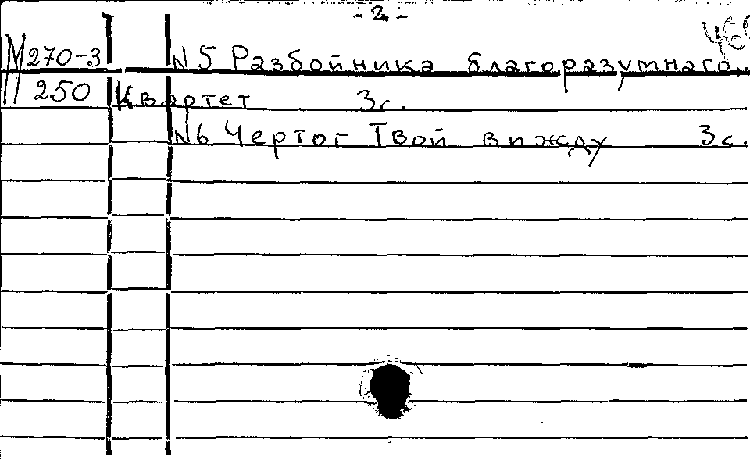 - 2 -
М270-3 N5 Разбойника благоразумнаго.
П 250 Квартет 3с.
N6 Чертог Твой вижду 3с.